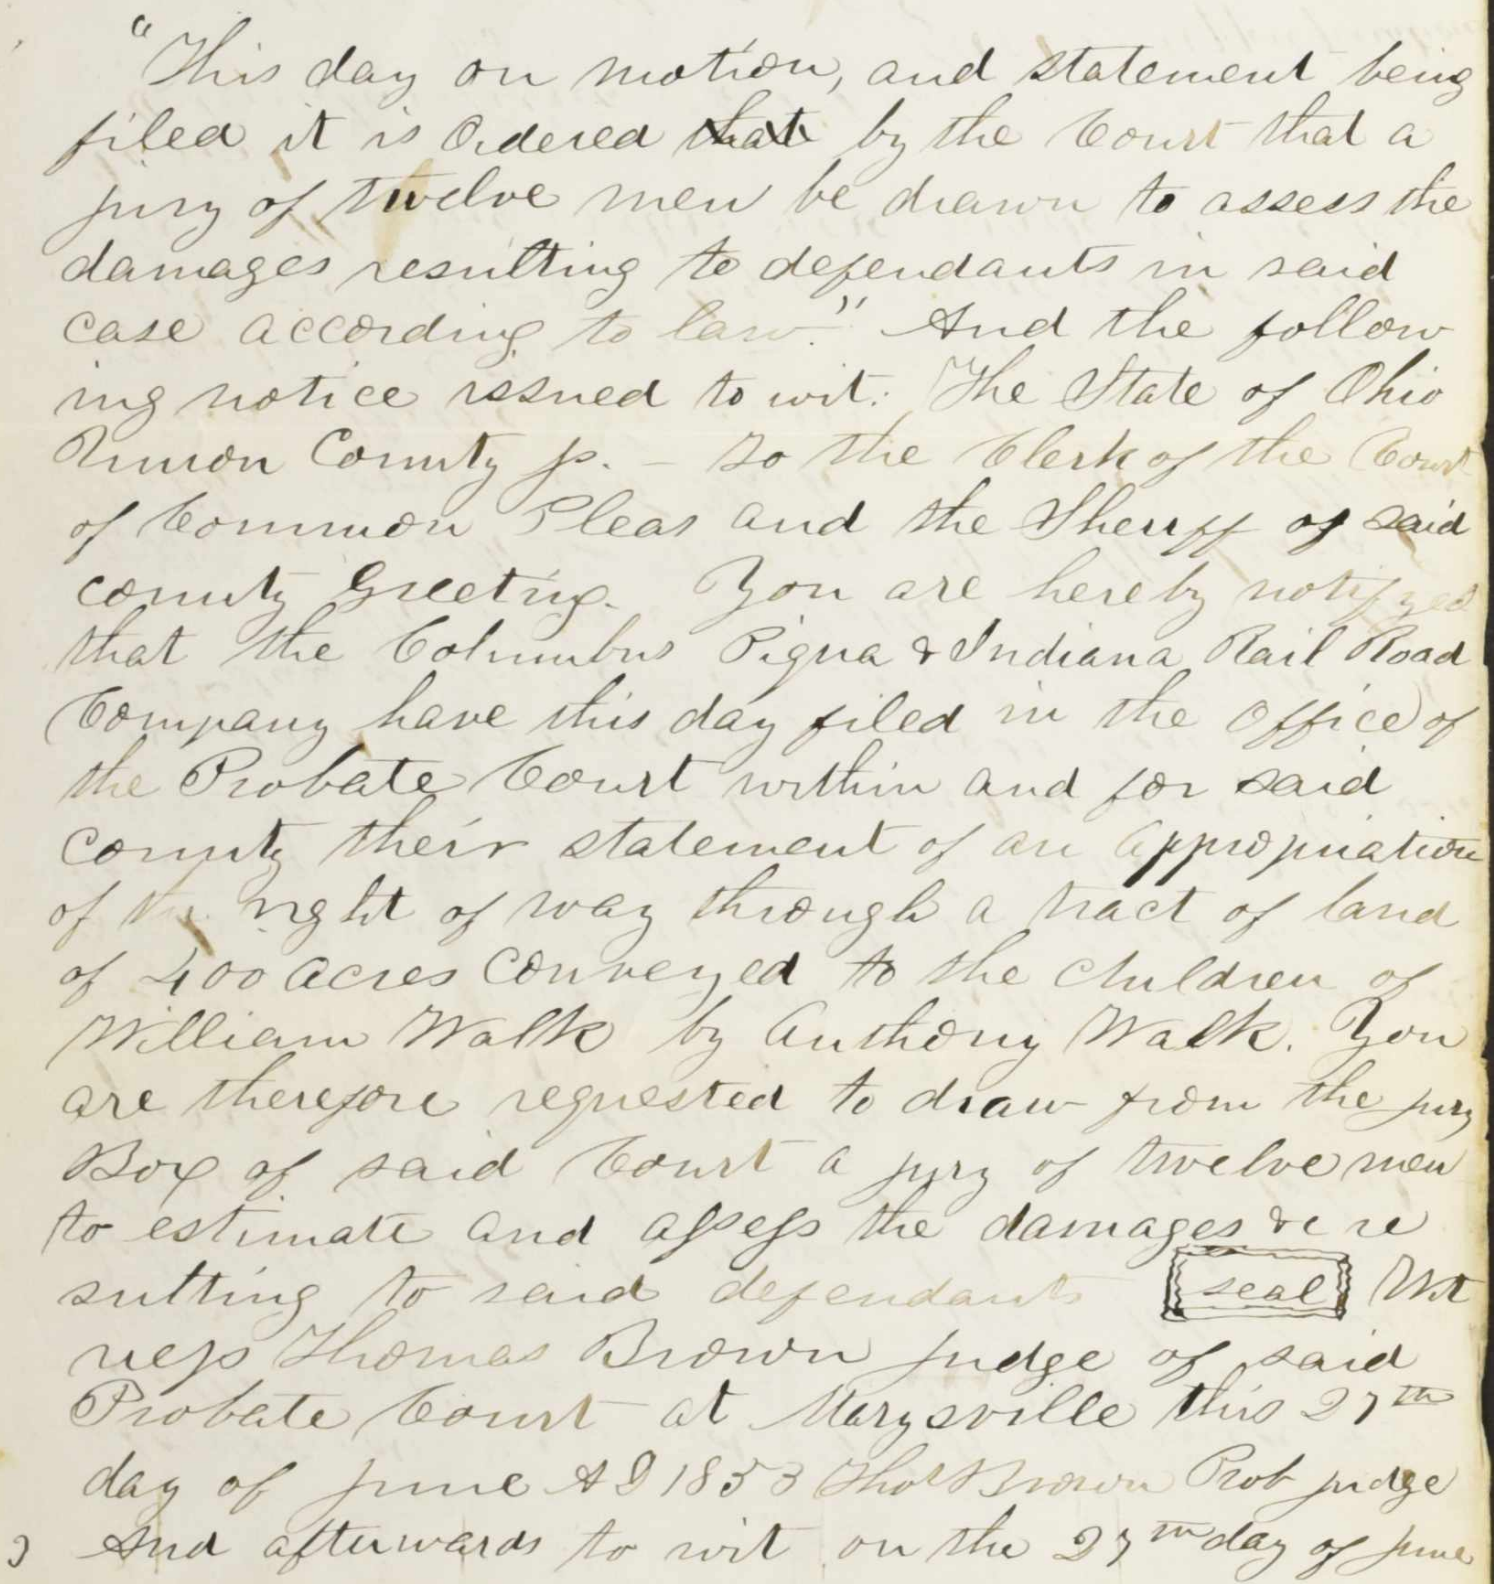 "This day on motion, and statement being
filed it is Ordered that by the Court that a
jury of twelve men be drawn to assess the
damages resulting to defendants in said
case according to law." And the follow
ing notice issued to wit: The State of Ohio
Union County ss. - To the Clerk of the Court
of Common Pleas and the Sheriff of said
county Greeting. You are hereby notifyed
that the Columbus Piqua & Indiana Rail Road
Company have this day filed in the office of
the Probate Court within and for said
County their statement of an appropriation
of the right of way through a tract of land
of 400 acres conveyed to the children of
William Walk by Anthony Walk. You
are therefore requested to draw from the jury
Box of said Court a jury of twelve men
to estimate and assess the damages &c re
sulting to said defendants seal Wit
ness Thomas Brown judge of said
Probate Court at Marysville this 27th
day of June AD 1853 Thos Brown Prob judge
And afterwards to wit on the 27th day of June